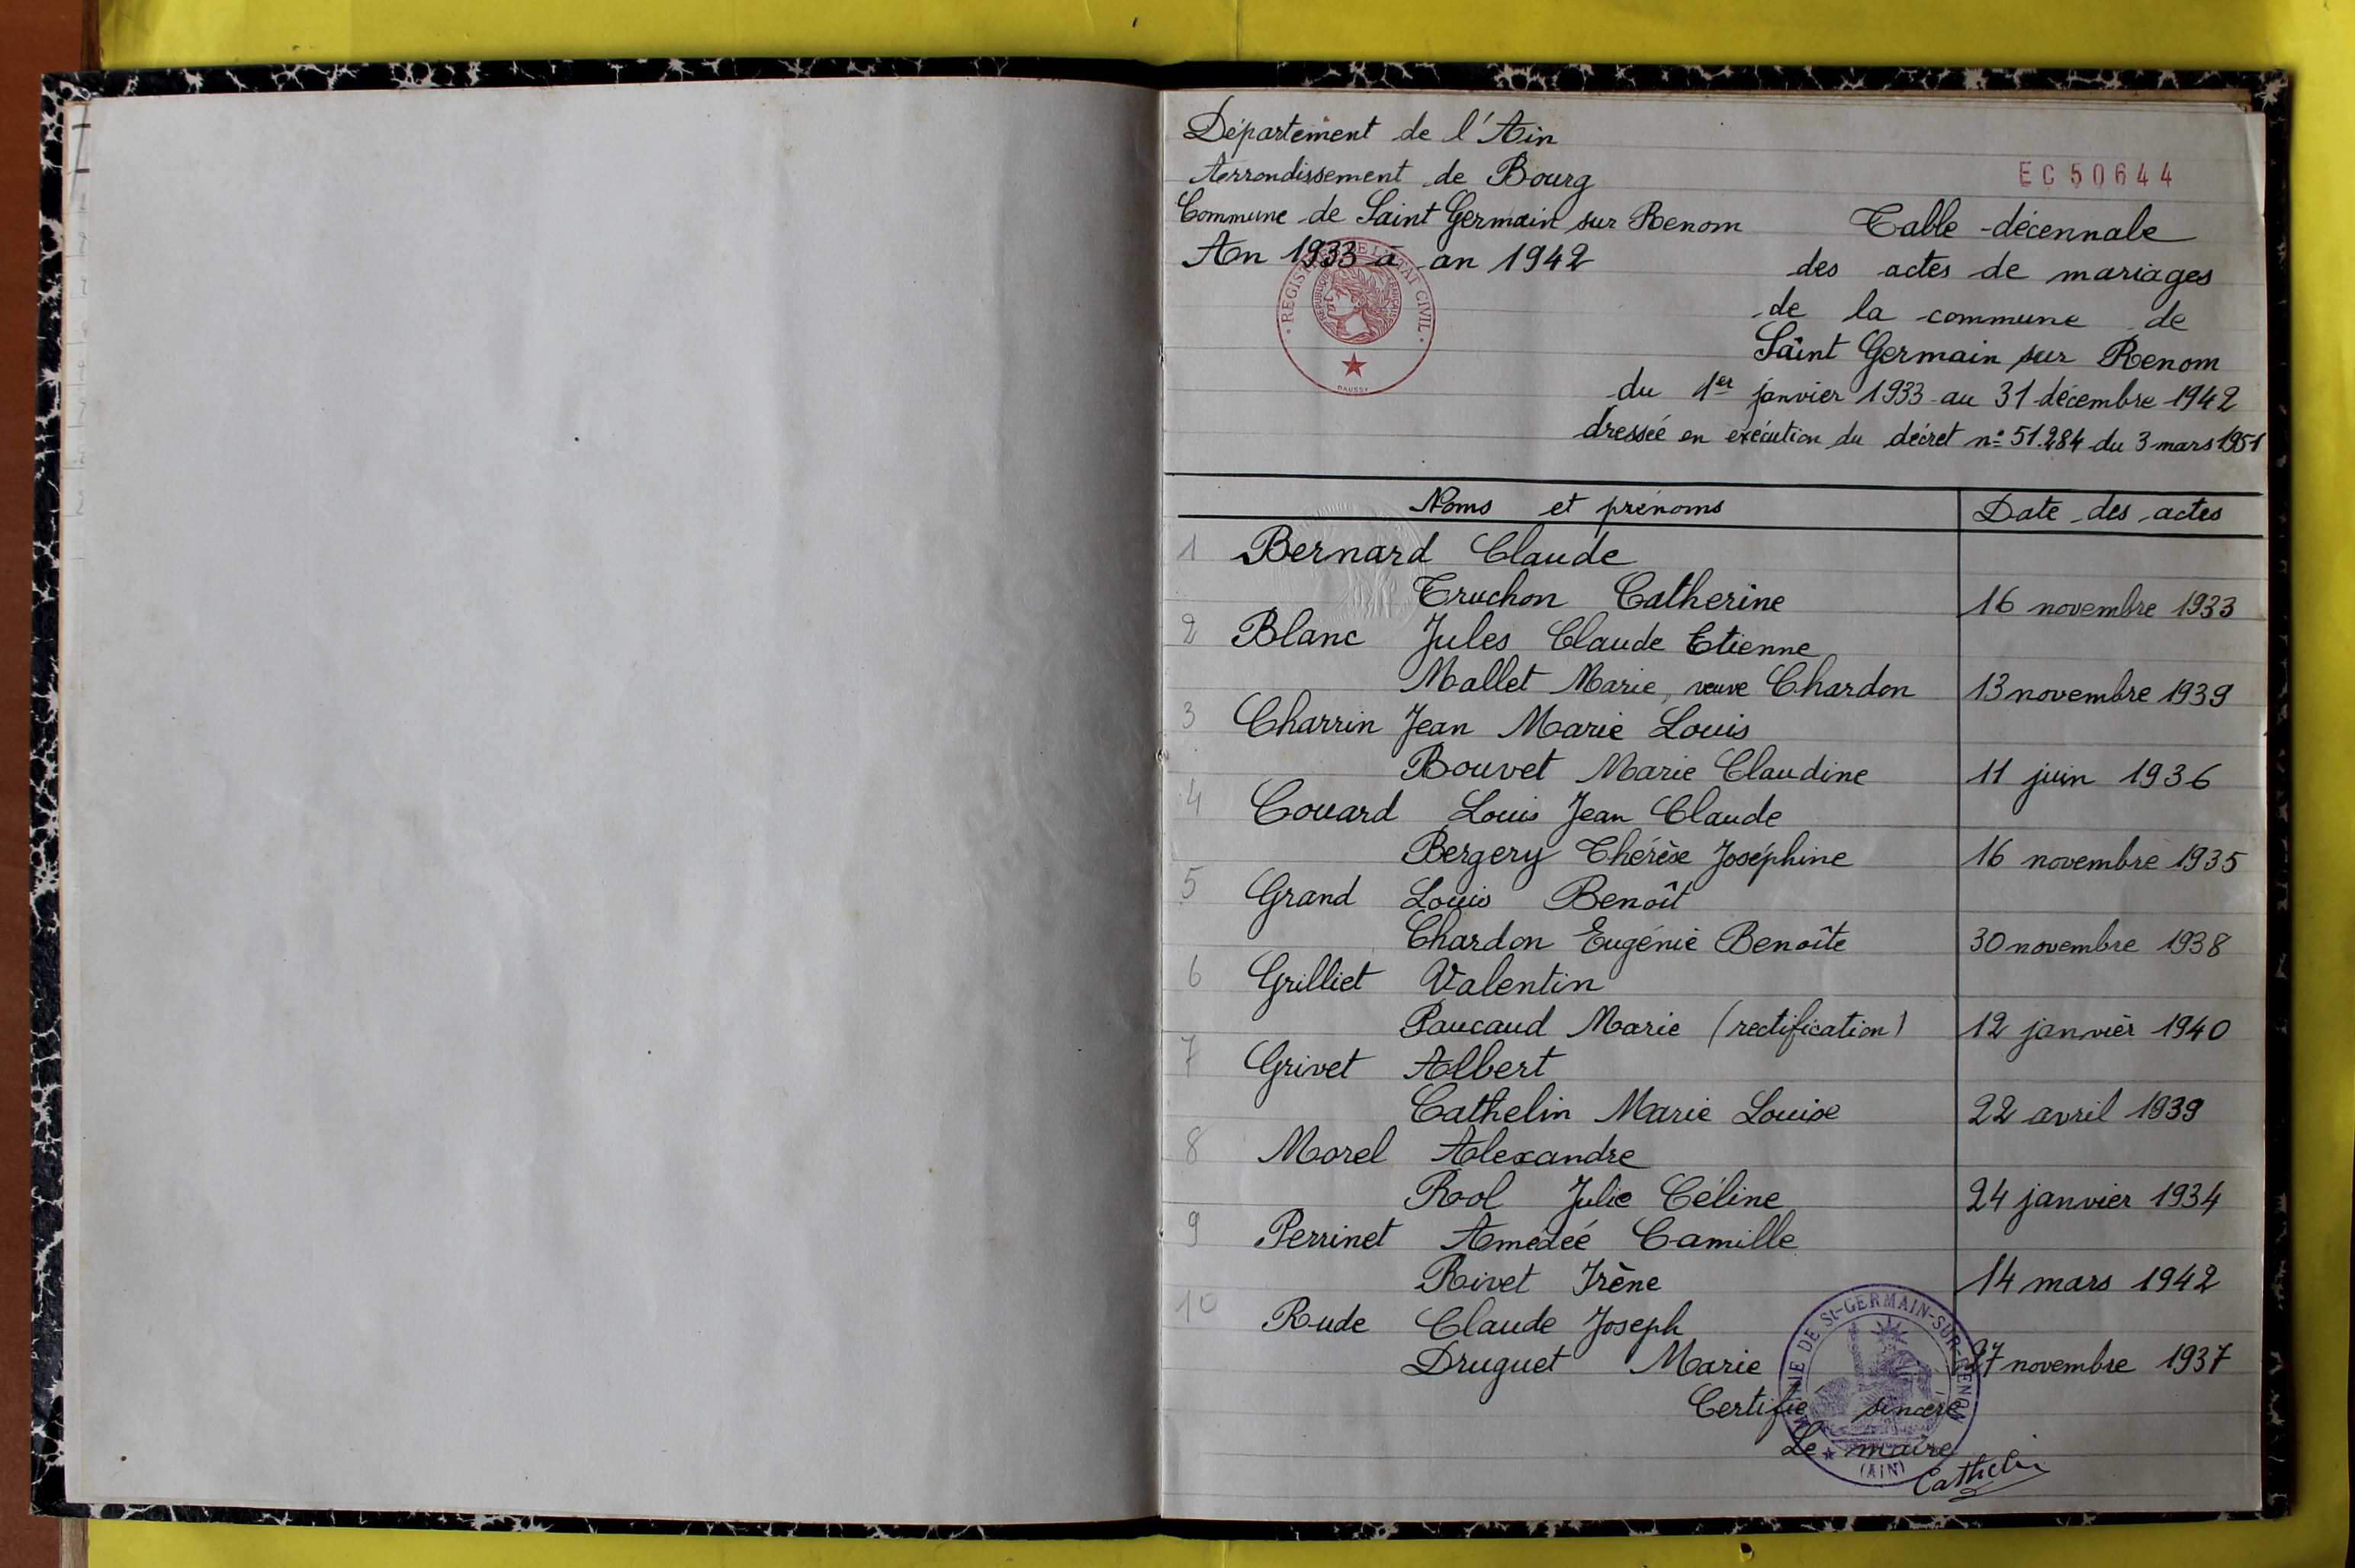 Département de l'Ain
Arrondissement de Bourg
EC 50644
Commune de Saint Germain sur Renom
An 1933 à an 1942
Table décennale
des actes de mariages
de la commune de
Saint Germain sur Renom
du 1er janvier 1933 au 31 décembre 1942
dressée en exécution du décret n° 51.284 du 3 mars 1951
REGISTRES DE L'ETAT CIVIL
REPUBLIQUE FRANÇAISE
DAUSSY
Noms et prénoms Date des actes
1 Bernard Claude
Truchon Catherine 16 novembre 1933
2 Blanc Jules Claude Etienne
Mallet Marie, veuve Chardon 13 novembre 1939
3 Charrin Jean Marie Louis
Bouvet Marie Claudine 11 juin 1936
4 Couard Louis Jean Claude
Bergery Thérèse Joséphine 16 novembre 1935
5 Grand Louis Benoît
Chardon Eugénie Benoîte 30 novembre 1938
6 Grilliet Valentin
Paucaud Marie (rectification) 12 janvier 1940
7 Grivet Albert
Cathelin Marie Louise 22 avril 1939
8 Morel Alexandre
Rol Julie Céline 24 janvier 1934
9 Perrinet Amédée Camille
Rivet Irène 14 mars 1942
10 Rude Claude Joseph
Druguet Marie 27 novembre 1937
Certifié sincère
Le maire
Cathelin
MAIRIE DE St-GERMAIN-SUR-RENON
(AIN)